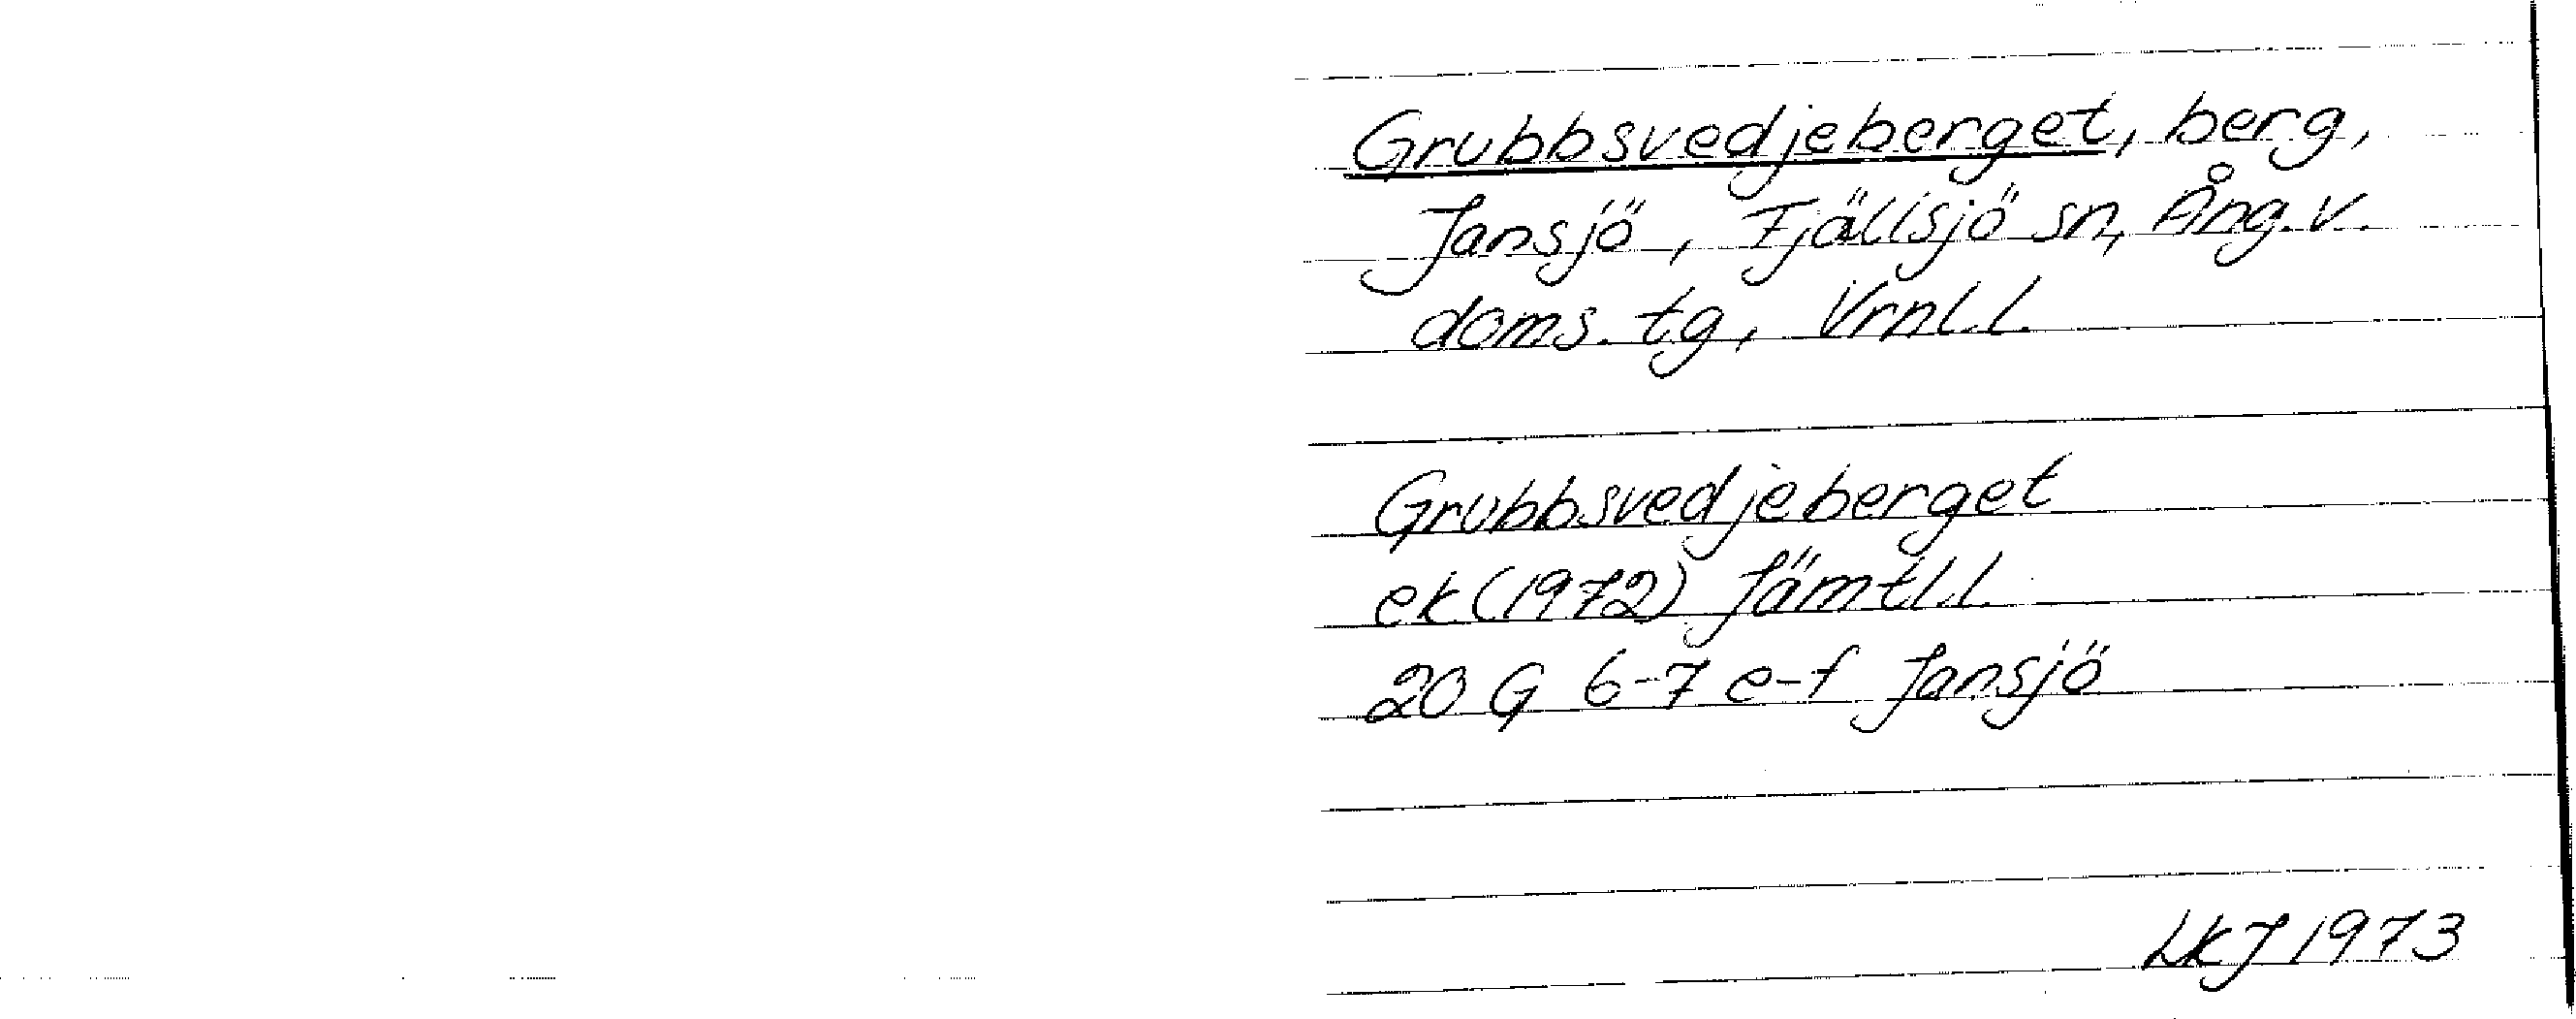 Grubbsvedjeberget, berg,
Jansjö, Fjällsjö sn, Ång.v.
doms.tg, Vrnl.l.
Grubbsvedjeberget
ek(1972) Jämtl.l.
20 G 6-7 e-f Jansjö
LKJ 1973